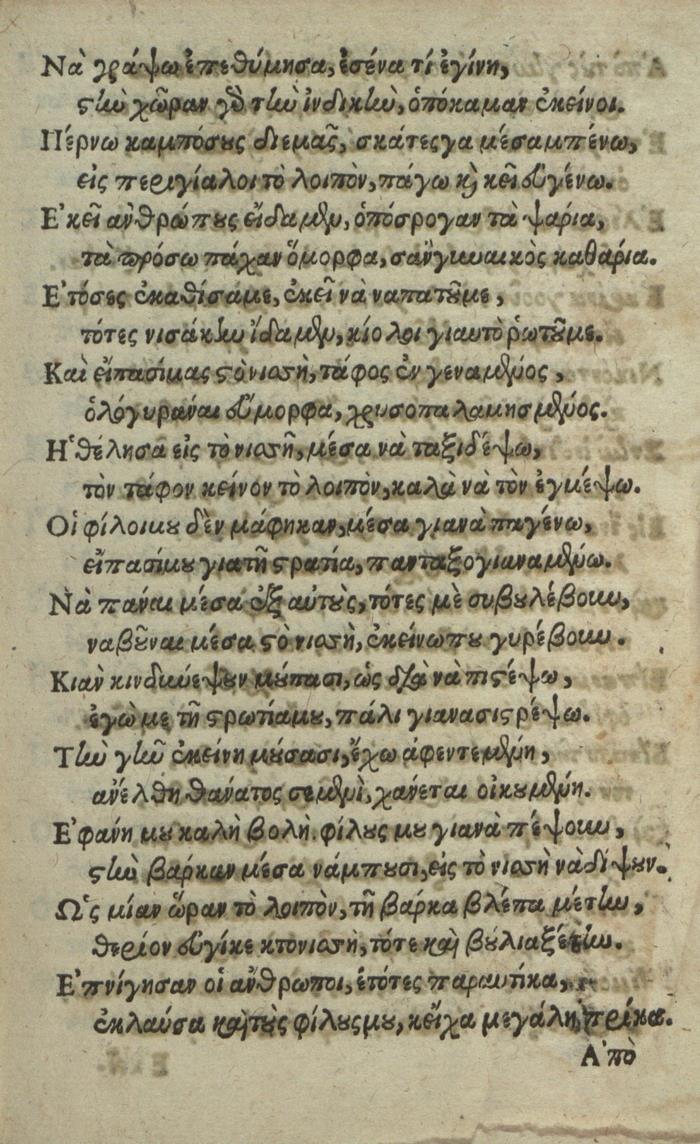 Νὰ γράψω ἐπεθύμησα, ἐσένα τί ἐγίνη,
στὴν χῶραν γὸ τὴν ἰνδικὴν, ὁπόκαμαν ἐκείνοι.
Πέρνω καμπόσους διεμᾶς, σκάτεςγα μέσαμπένω,
εἰς περιγίαλοι τὸ λοιπὸν, πάγω κὶ κεῖ εὐγένω.
Ε'κεῖ ἀνθρώπους εἴδαμεν, ὁπόσρογαν τὰ ψαρία,
τὰ πρόσω πάχαν ὅμορφα, σὰν γιυαικὸς καθαρία.
Ε'τόσες ἐκαθίσάμε, ἐκεῖ νὰ ναπατοῦμε,
τότες νισάκην ἴδαμεν, κίολοι γιαυτὸ ῥωτοῦμε.
Καὶ εἴπασίμας στὸ νιστὴ, τάφος ἐν γεναμένος,
ὁλόγυράναι εὔμορφα, χρυσοπαλαμησμένος.
Η'θέλησα εἰς τὸ νιστὴ, μέσα νὰ ταξιδέψω,
τὸν τάφον κείνον τὸ λοιπὸν, καλὰ νὰ τὸν ἐγμέψω.
Οἱ φίλοιμου δὲν μάφηκαν, μέσα γιανὰ παγένω,
εἴπασίμου γιατὴ στρατία, πανταξογιαναμένω.
Νὰ πάναι μέσα ἐξ αὐτοὺς, τότες μὲ συβουλέβουν,
ναβοῦναι μέσα στὸ νιστὴ, ἐκείνωπου γυρέβουν.
Κιὰν κινδυνέψουν μόυπασι, ὡς διὰ νὰ πιστέψω,
ἐγὼ με τὴ στρωτίαμου, πάλι γιανασιστρέψω.
Τὴν γνὴν ἐκείνη μόυσασι, ἔχω ἀφεντεμένη,
ἀνέλθη θάνατος σεμένα, χάνεται οἰκουμένη.
Ε'φανή μου καλὴ βολὴ φίλους μου γιανὰ πέψουν,
στὴν βάρκαν μέσα νάμπουσι, εἰς τὸ νιστὴ νὰ δίψουν.
Ω'ς μίαν ὥραν τὸ λοιπὸν, τὴ βάρκα βλέπα μέτην,
θερίον εὐγίκε κτονιστὴ, τότε καὶ βούλιαξέτην.
Ε'πνίγησαν οἱ ἄνθρωποι, ἐτότες παραυτίκα,
ἐκλαύσα καὶ τοὺς φίλουςμου, κεἶχα μεγάλη πρίκα.
Α'πὸ